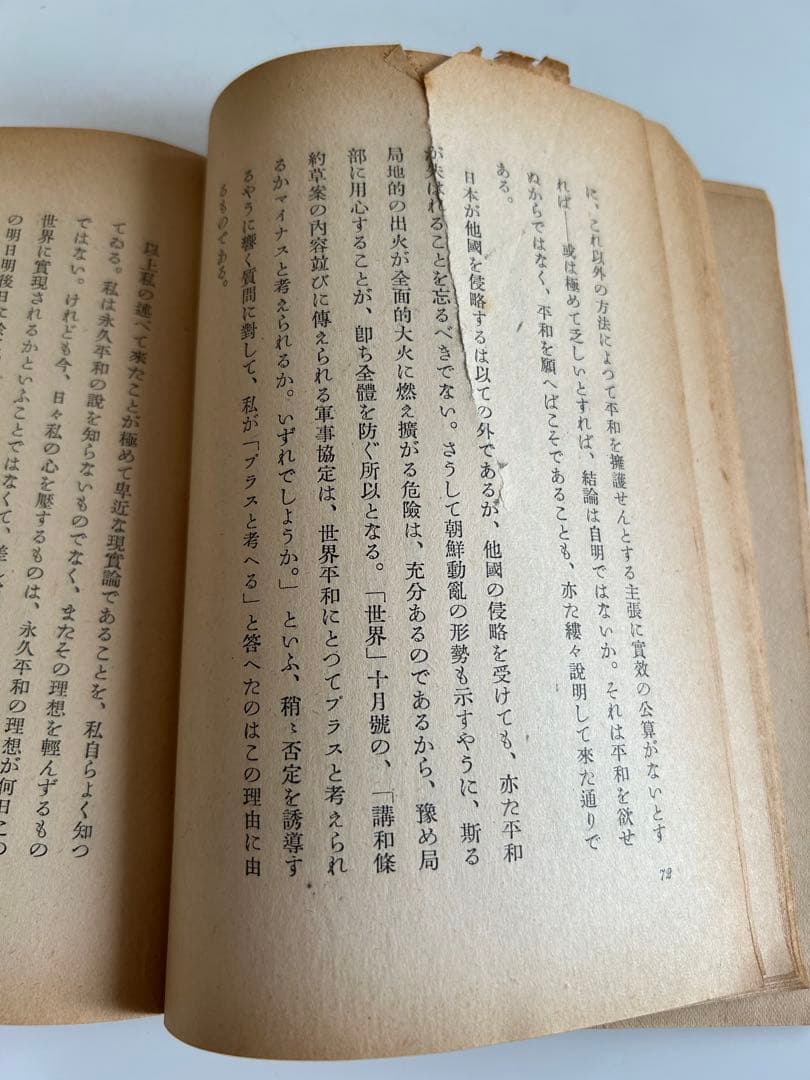 に、これ以外の方法によつて平和を擁護せんとする主張に實效の公算がないとす
れば——或は極めて乏しいとすれば、結論は自明ではないか。それは平和を欲せ
ぬからではなく、平和を願へばこそであることも、亦た縷々説明して來た通りで
ある。
日本が他國を侵略するは以ての外であるが、他國の侵略を受けても、亦た平和
が失はれることを忘るべきでない。さうして朝鮮動亂の形勢も示すやうに、斯る
局地的の出火が全面的大火に燃え擴がる危險は、充分あるのであるから、豫め局
部に用心することが、卽ち全體を防ぐ所以となる。「世界」十月號の、「講和條
約草案の內容竝びに傳えられる軍事協定は、世界平和にとつてプラスと考えられ
るかマイナスと考えられるか。いずれでしようか。」といふ、稍〻否定を誘導す
るやうに響く質問に對して、私が「プラスと考へる」と答へたのはこの理由に由
るものである。
72
以上私の述べて來たことが極めて卑近な現實論であることを、私自らよく知つ
てゐる。私は永久平和の說を知らないものでなく、またその理想を輕んずるもの
ではない。けれども今、日々私の心を壓するものは、永久平和の理想が何日この
世界に實現されるかといふことではなくて、差し
の明日明後日に